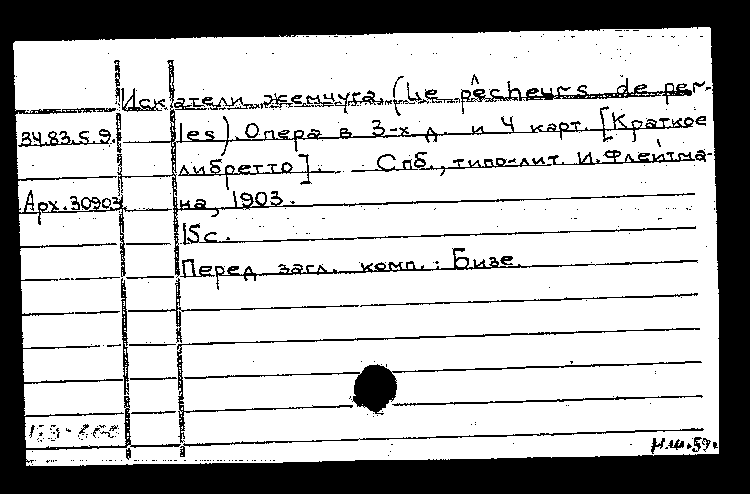 Искатели жемчуга. (Le pêcheurs de per-
34.83.5.9. les). Опера в 3-х д. и 4 карт. [Краткое
либретто]. Спб., типо-лит. И. Флейтма-
Арх.30903 на, 1903.
15с.
Перед загл. комп.: Бизе.